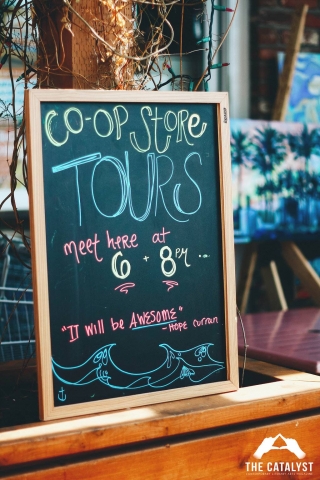 CO-OP Store
TOURS
meet here at
6 + 8 PM ...
"It will be AWESOME"
- HOPE curran
THE CATALYST